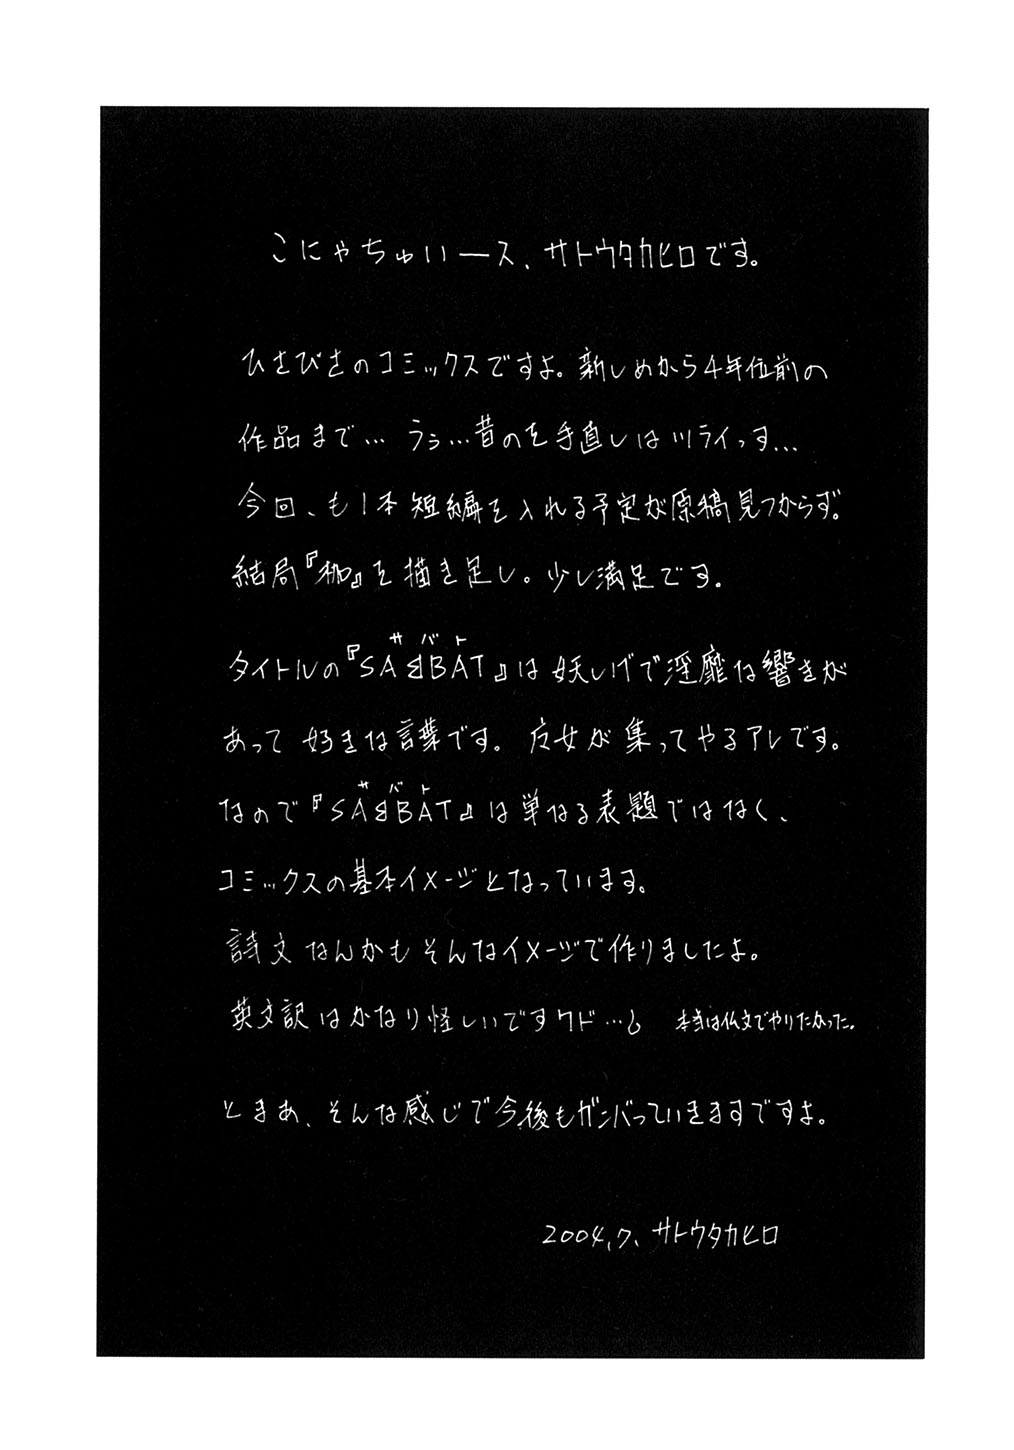 こにゃちゅいース、サトウタカヒロです。
ひさびさのコミックスですよ。新しめから4年位前の
作品まで… うぅ…昔のを手直しはツライっす…
今回、も1本短編を入れる予定が原稿見つからず。
結局『枷』を描き足し。少し満足です。
サバト
タイトルの『SABBAT』は妖しげで淫靡な響きが
あって好きな言葉です。魔女が集ってやるアレです。
サバト
なので『SABBAT』は単なる表題ではなく、
コミックスの基本イメージとなっています。
詩文なんかもそんなイメージで作りましたよ。
英文訳はかなり怪しいですケド…。 本当は仏文でやりたかった。
とまあ、そんな感じで今後もガンバっていきますですよ。
2004,7、サトウタカヒロ